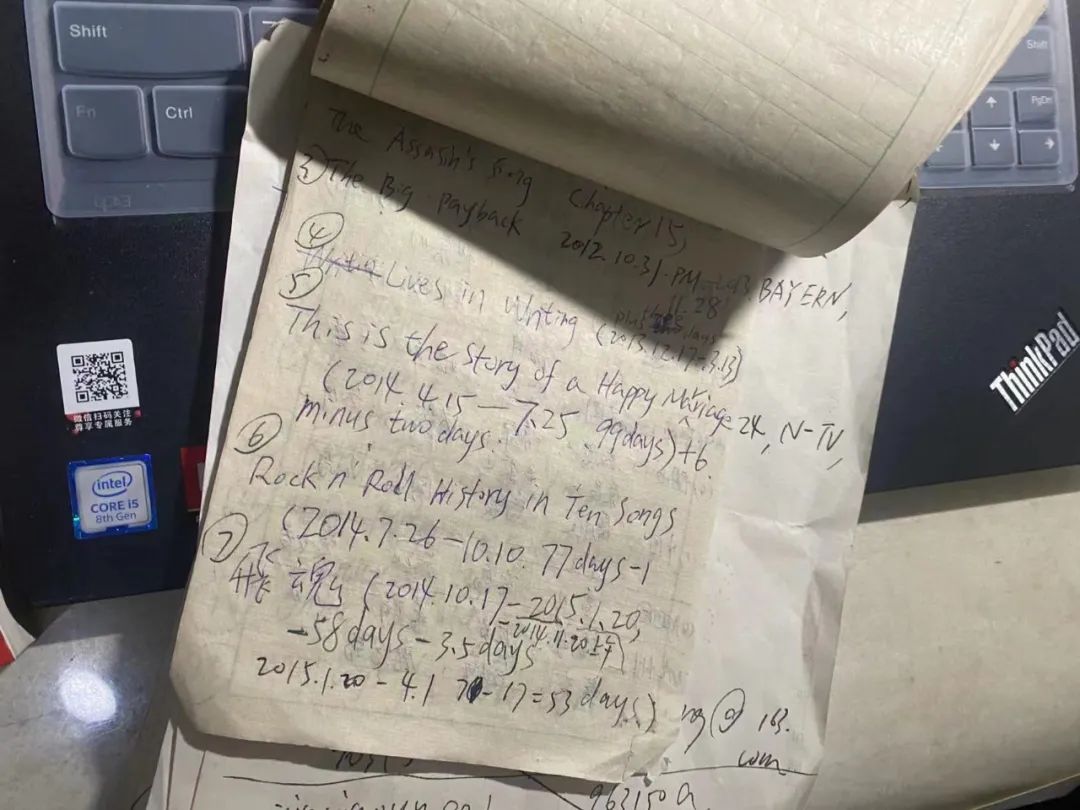 Shift
Fn
Ctrl
Shift
PgDn
The Assasin's Song Chapter 15,
③ The Big Payback 2012.10.31.PM
BAYERN,
④
Lives in Writing (plus days
11.28
2013.12.17-3.13)
⑤
This is the story of a Happy Marriage 24, N-TV,
(2014.4.15—7.25 99days)+6
minus two days.
⑥
Rock n' Roll History in Ten Songs
(2014.7.26-10.10. 77days-1
⑦
魂 (2014.10.17-2015.1.20,
2014.11.20上午
-58days-3.5days)
2015.1.20-4.1 -17=53 days)
@ 163.
com
微信扫码关注
尊享专属服务
intel
CORE i5
8th Gen
ThinkPad
963150